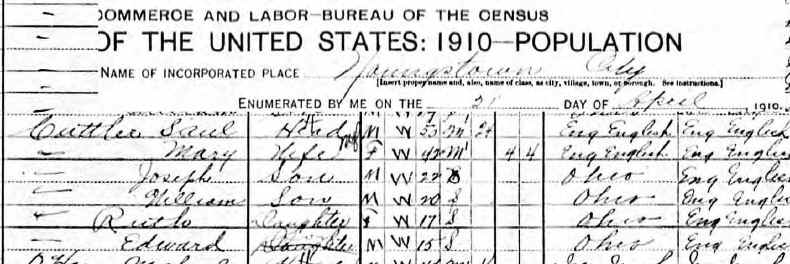 COMMERCE AND LABOR—BUREAU OF THE CENSUS
OF THE UNITED STATES: 1910—POPULATION
NAME OF INCORPORATED PLACE Youngstown City
[Insert proper name and, also, name of class, as city, village, town, or borough. See instructions.]
ENUMERATED BY ME ON THE 21 DAY OF April 1910.
Saul Head M W 53 M 24 Eng English Eng English
— Mary Wife F W 42 M 4 4 Eng English Eng English
— Joseph Son M W 22 S Ohio Eng English
— William Son M W 20 S Ohio Eng English
— Ruth Daughter F W 17 S Ohio Eng English
— Edward Daughter M W 15 S Ohio Eng English